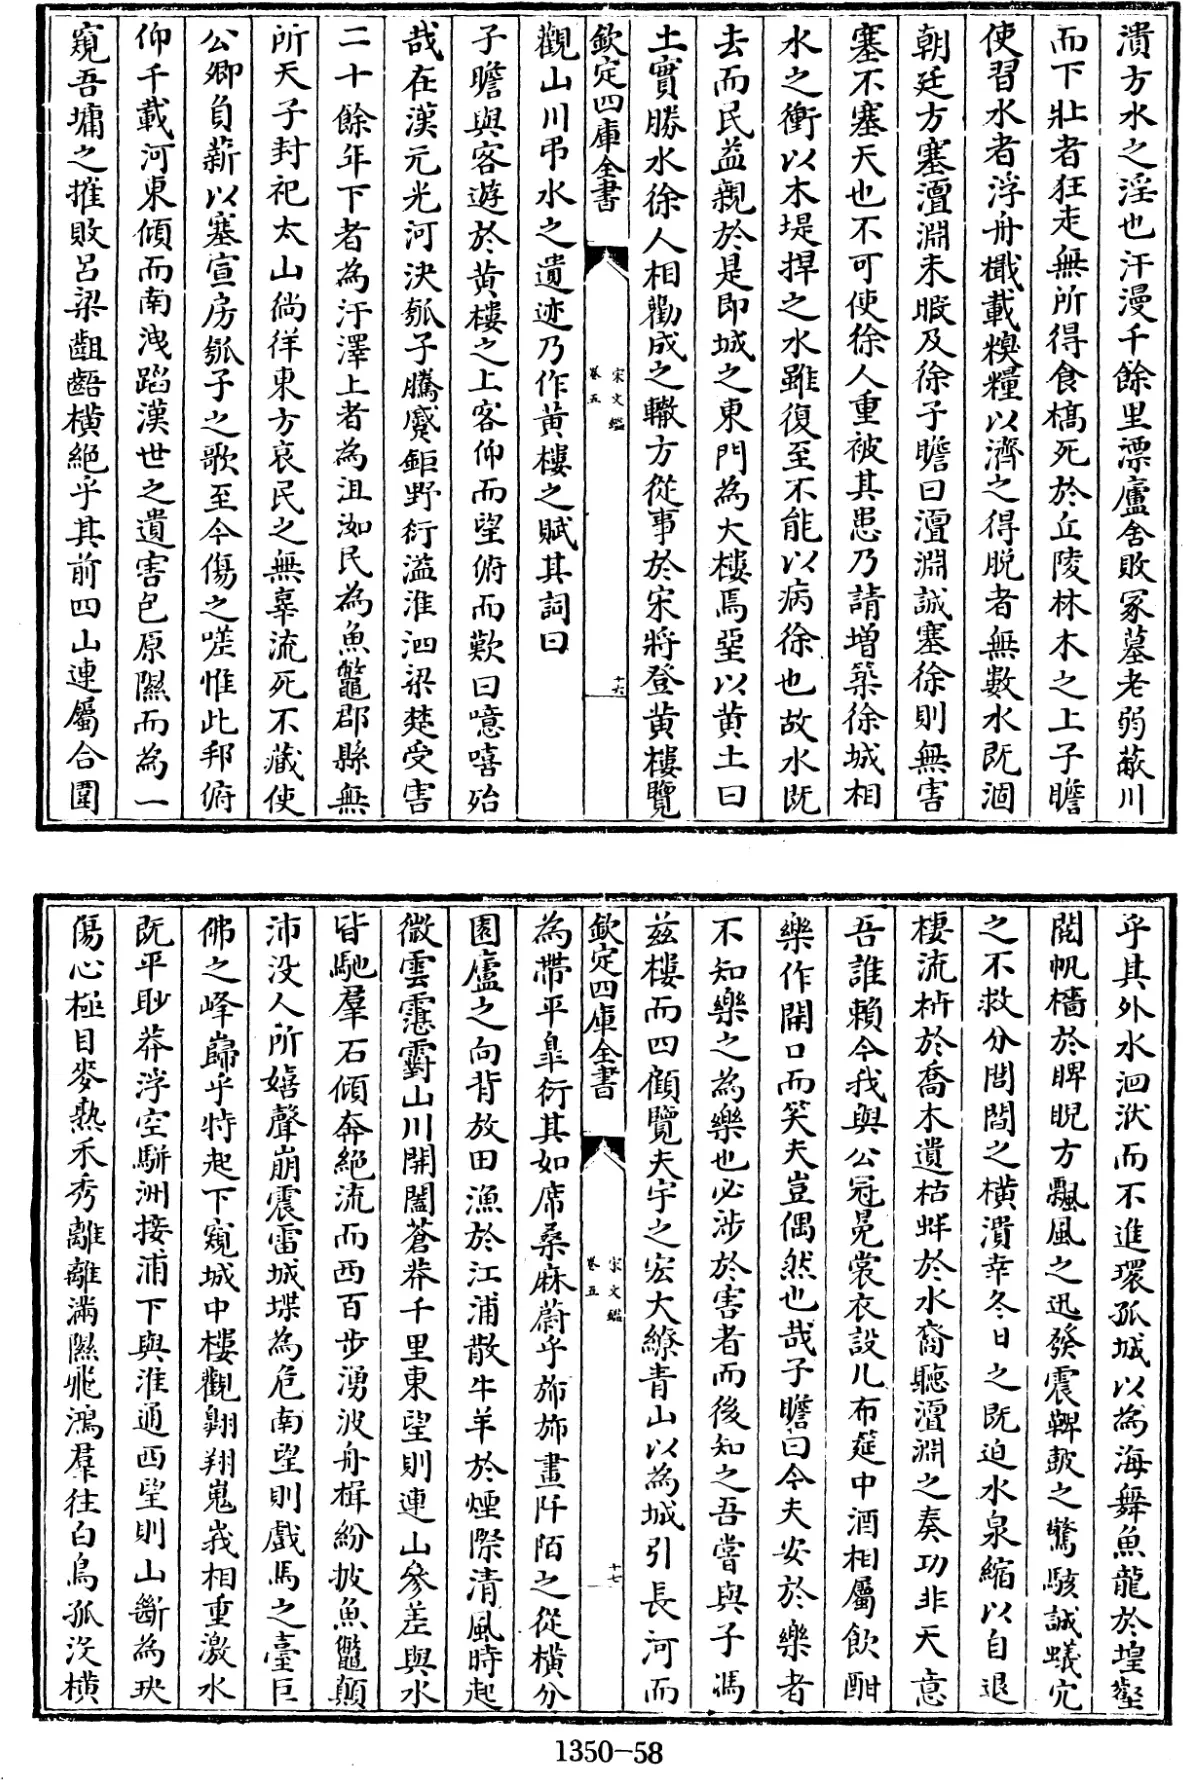 潰方水之淫也汗漫千餘里漂廬舍敗冢墓老弱蔽川
而下壯者狂走無所得食槁死於丘陵林木之上子瞻
使習水者浮舟檝載糗糧以濟之得脫者無數水旣涸
朝廷方塞澶淵未暇及徐子瞻曰澶淵誠塞徐則無害
塞不塞天也不可使徐人重被其患乃請增築徐城相
水之衝以木堤捍之水雖復至不能以病徐也故水既
去而民益親於是即城之東門為大樓焉堊以黄土曰
土實勝水徐人相勸成之轍方從事於宋將登黄樓覽
欽定四庫全書
宋文鑑
卷五
十六
觀山川弔水之遺迹乃作黄樓之賦其詞曰
子瞻與客遊於黄樓之上客仰而望俯而歎曰噫嘻殆
哉在漢元光河決瓠子騰蹙鉅野衍溢淮泗梁楚受害
二十餘年下者為汙澤上者為沮洳民為魚鼈郡縣無
所天子封祀太山徜徉東方哀民之無辜流死不藏使
公卿負薪以塞宣房瓠子之歌至今傷之嗟惟此邦俯
仰千載河東傾而南洩蹈漢世之遺害包原隰而為一
窺吾墉之摧敗呂梁齟齬橫絶乎其前四山連屬合圍
乎其外水洄洑而不進環孤城以為海舞魚龍於隍壑
閲帆檣於睥睨方飄風之迅發震鞞鼓之驚駭誠蟻穴
之不救分閭閻之橫潰幸冬日之既迫水泉縮以自退
棲流枿於喬木遺枯蚌於水裔聽澶淵之奏功非天意
吾誰賴今我與公冠冕裳衣設几布筵中酒相屬飲酣
樂作開口而笑夫豈偶然也哉子瞻曰今夫安於樂者
不知樂之為樂也必涉於害者而後知之吾嘗與子馮
兹樓而四顧覽天宇之宏大繚青山以為城引長河而
欽定四庫全書
宋文鑑
卷五
十七
為帶平臯衍其如席桑麻蔚乎斾斾畫阡陌之從橫分
園廬之向背放田漁於江浦散牛羊於煙際清風時起
微雲霮䨴山川開闔蒼莽千里東望則連山參差與水
皆馳羣石傾奔絶流而西百步湧波舟楫紛披魚鼈顛
沛没人所嬉聲崩震雷城堞為危南望則戲馬之臺巨
佛之峰巋乎特起下窺城中樓觀翺翔嵬峩相重激水
既平眇莽浮空駢洲接浦下與淮通西望則山斷為玦
傷心極目麥熟禾秀離離滿隰飛鴻羣往白鳥孤没橫
1350-58